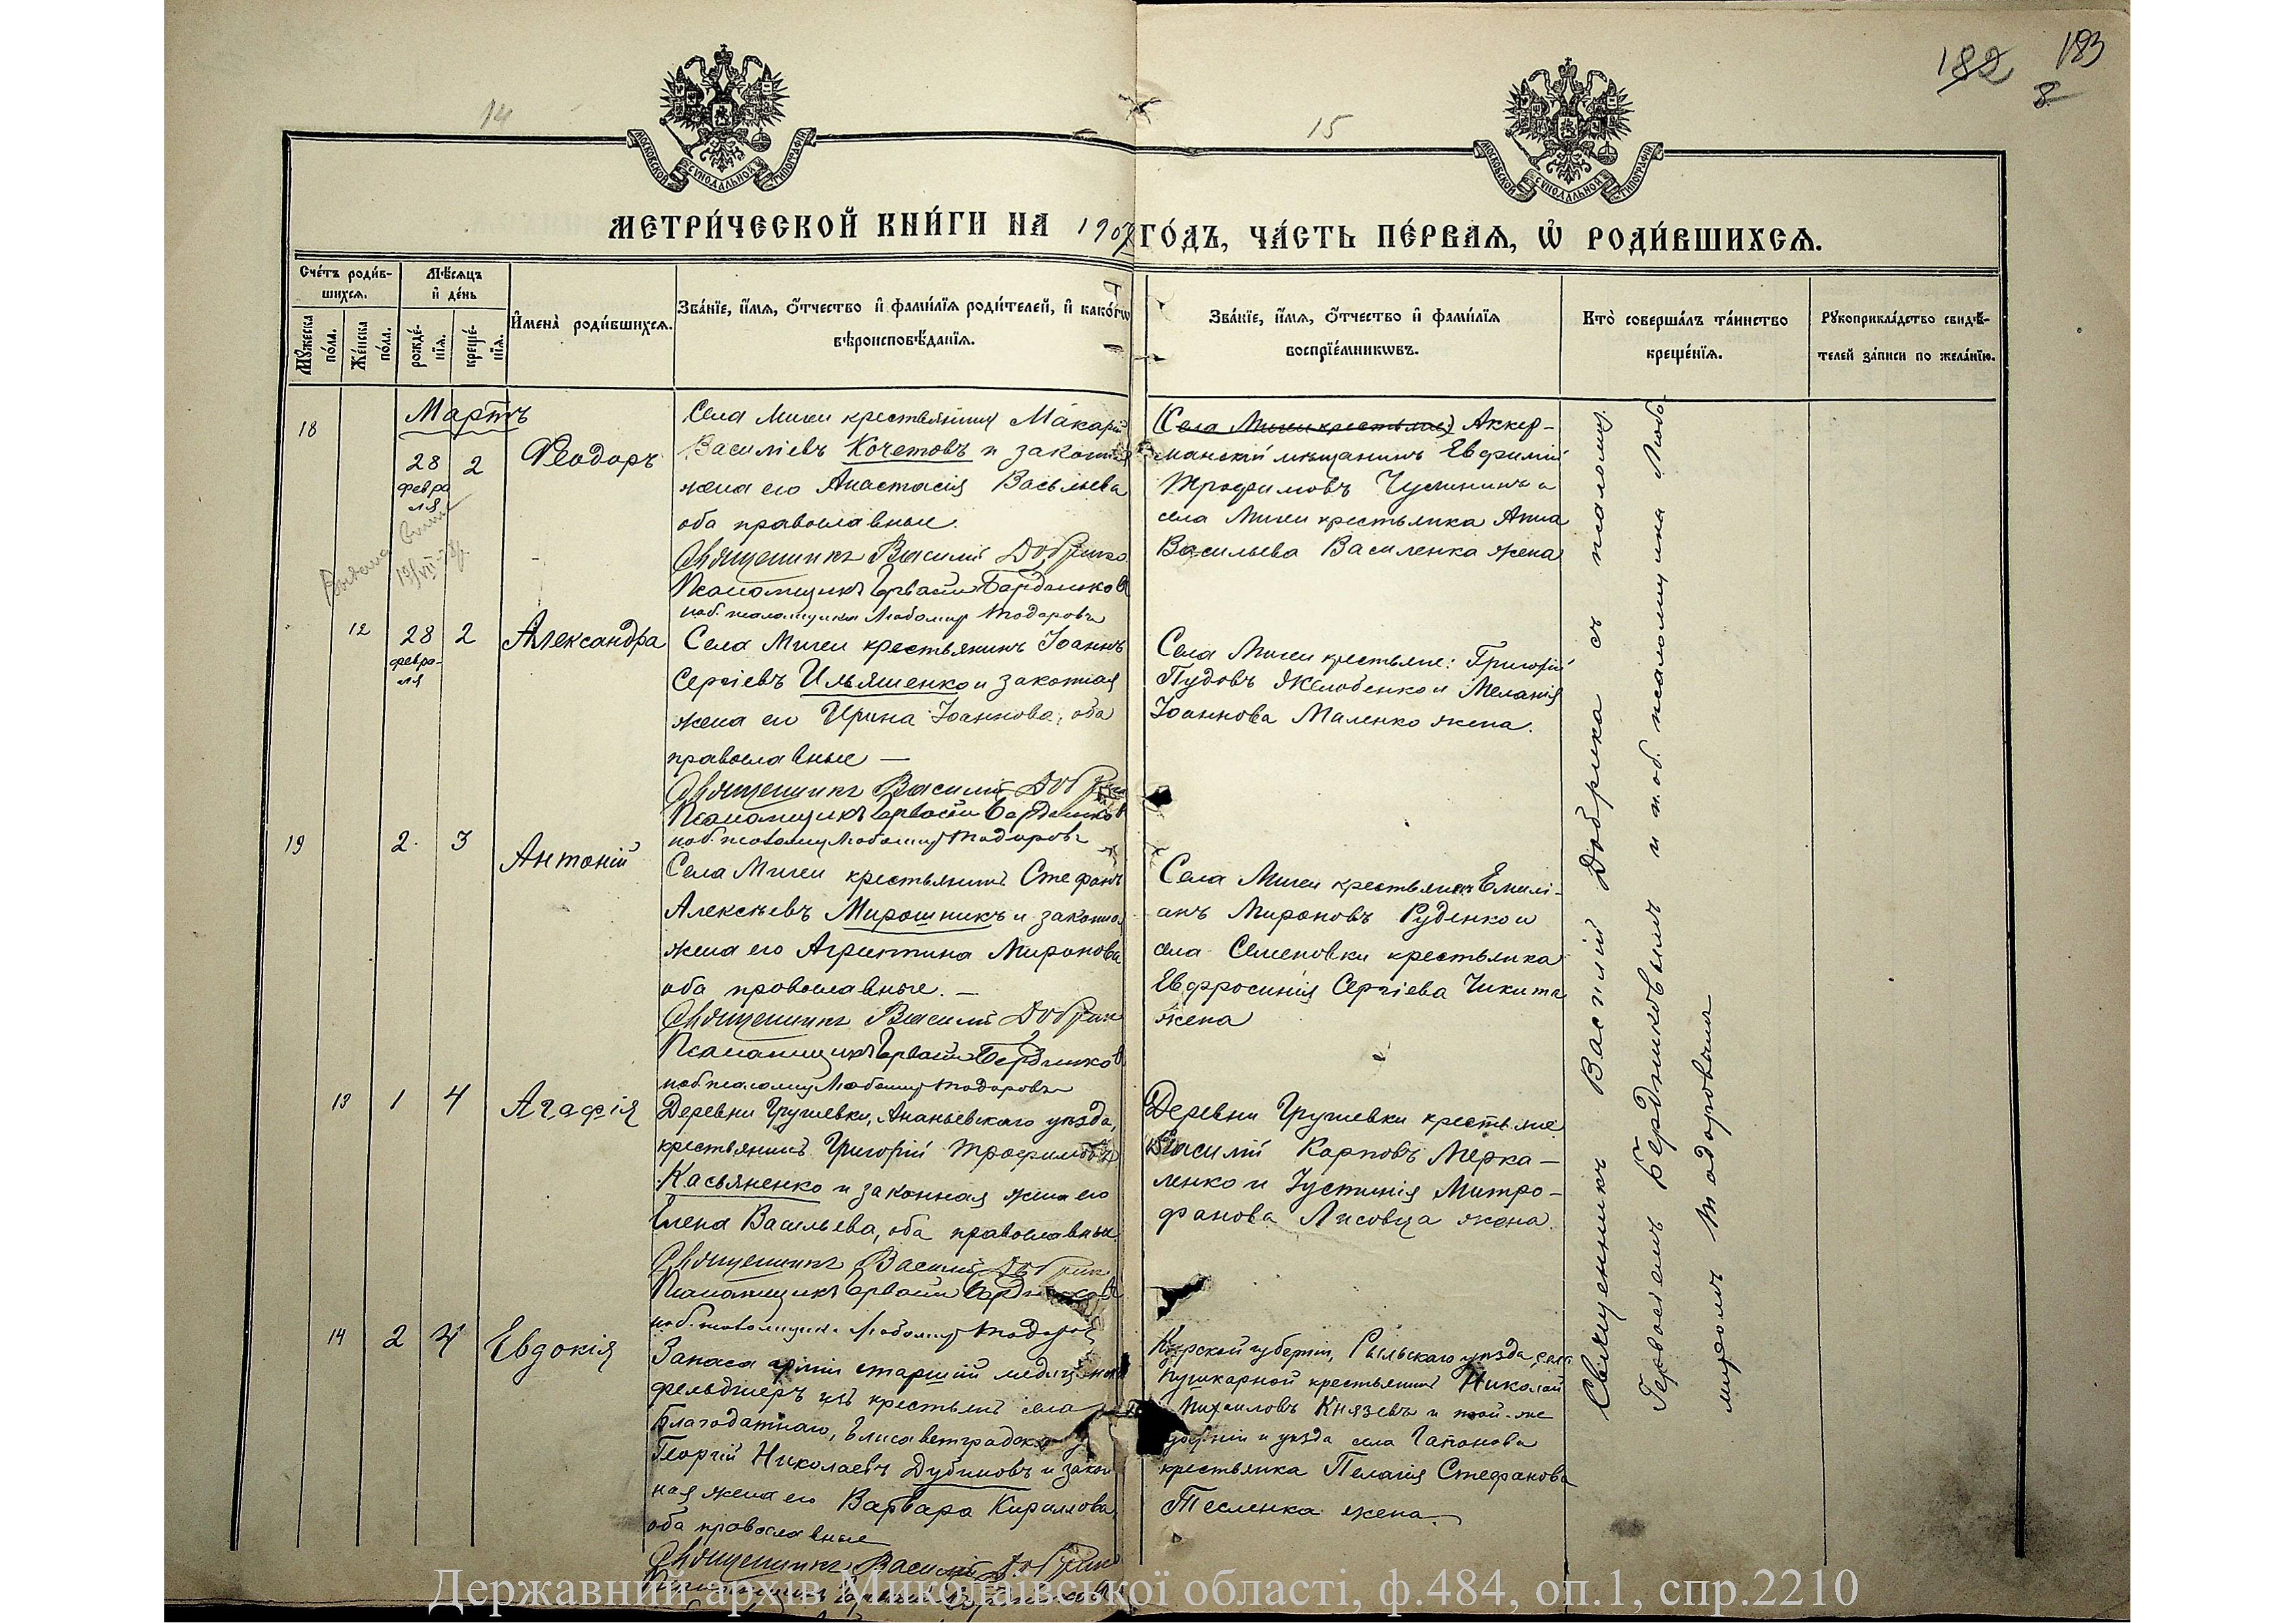 14
15
182
183
8
МОСКОВСКОЙ СѴНОДАЛЬНОЙ ТИПОГРАФІИ
МОСКОВСКОЙ СѴНОДАЛЬНОЙ ТИПОГРАФІИ
МЕТРИ́ЧЕСКОЙ КНИ́ГИ НА 1907 ГО́ДЪ, ЧА́СТЬ ПЕ́РВАЯ, Ѡ҆ РОДИ́ВШИХСЯ.
Сче́тъ роди́в-
шихся.
Мѣ́сяцъ
и҆ де́нь
Мꙋ́жеска
по́ла.
Же́нска
по́ла.
рожде́-
нїя.
креще́-
нїя.
И҆мена̀ роди́вшихся.
Зва́нїе, и҆́мя, ѻ҆́тчество и҆ фами́лїя роди́телей, и҆ како́гѡ
вѣроисповѣ́данїя.
Зва́нїе, и҆́мя, ѻ҆́тчество и҆ фами́лїя
воспрїе́мникѡвъ.
Кто̀ соверша́лъ та́инство
креще́нїя.
Рꙋкоприкла́дство свидѣ́-
телей за́писи по жела́нїю.
Мартъ
18
28
февра
ля
2
Ѳеодоръ
Села Мигеи крестьянинъ Макарій
Василіевъ Кочетовъ и законная
жена его Анастасія Васильева
оба православные.
Священникъ Василій Добрика
Псаломщикъ Гервасій Бердников
и об. псаломщика Любомир Тодоровъ
(Села Мигеи крестьяне) Аккер-
манскій мѣщанинъ Евфимій
Трофимовъ Чусининъ и
села Мигеи крестьянка Анна
Васильева Василенка жена
12
28
февра-
ля
2
Александра
Села Мигеи крестьянинъ Іоаннъ
Сергіевъ Ильяшенко и законная
жена его Ирина Іоаннова, оба
православные —
Священникъ Василій Добрика
Псаломщикъ Гервасій Бердников
и об. псаломщ Любомир Тодоровъ
Села Мигеи крестьяне: Григорій
Пудовъ Желобенко и Меланія
Іоаннова Маленко жена.
19
2.
3
Антоній
Села Мигеи крестьянинъ Стефанъ
Алексѣевъ Мирошникъ и законная
жена его Агриппина Миронова
оба православные. —
Священникъ Василій Добрика
Псаломщикъ Гервасій Бердников
и об псаломщ Любомир Тодоровъ
Села Мигеи крестьянинъ Емилі-
анъ Мироновъ Руденко и
села Семеновки крестьянка
Евфросинія Сергіева Чикита
жена
13
1
4
Агафія
Деревни Грушевки, Ананьевскаго уѣзда,
крестьянинъ Григорій Трофимовъ
Касьяненко и законная жена его
Елена Васильева, оба православные
Священникъ Василій Добрика
Псаломщикъ Гервасій Бердников
и об. псаломщика Любомир Тодоров
Деревни Грушевки крестьяне
Василій Карповъ Мерка-
ленко и Іустинія Митро-
фанова Лисовца жена.
14
2
4
Евдокія
Запаса арміи старшій медиц
фельдшеръ изъ крестьянъ села
Благодатнаго, Елисаветградск
Георгій Николаевъ Дубиновъ и закон
ная жена его Варвара Кириллова,
оба православные
Священникъ Василій Добрика
Псаломщикъ Гервасій Бердников
Курской губерніи, Рыльскаго уѣзда, села
Пушкарной крестьянинъ Николай
Михаиловъ Князевъ и той-же
губерніи и уѣзда села Гапонова
крестьянка Пелагія Стефанова
Тесленка жена.
Священникъ Василій Добрика съ псаломщ.
Гервасіемъ Бердниковымъ и и. об. псаломщика Любо-
миромъ Тодоровымъ
Державний архів Миколаївської області, ф.484, оп.1, спр.2210